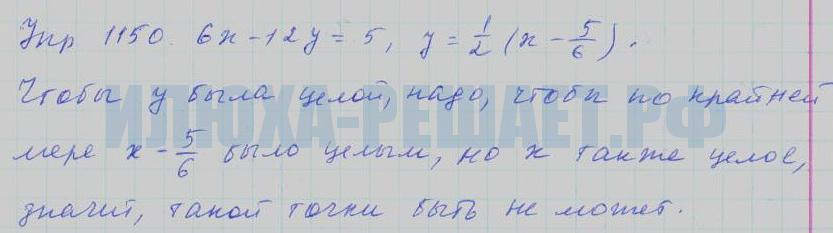 Упр 1150. 6x - 12y = 5, y = 1/2 (x - 5/6).
Чтобы y была целой, надо, чтобы по крайней
мере x - 5/6 было целым, но x также целое,
значит, такой точки быть не может.
ИЛЮХА-РЕШАЕТ.РФ